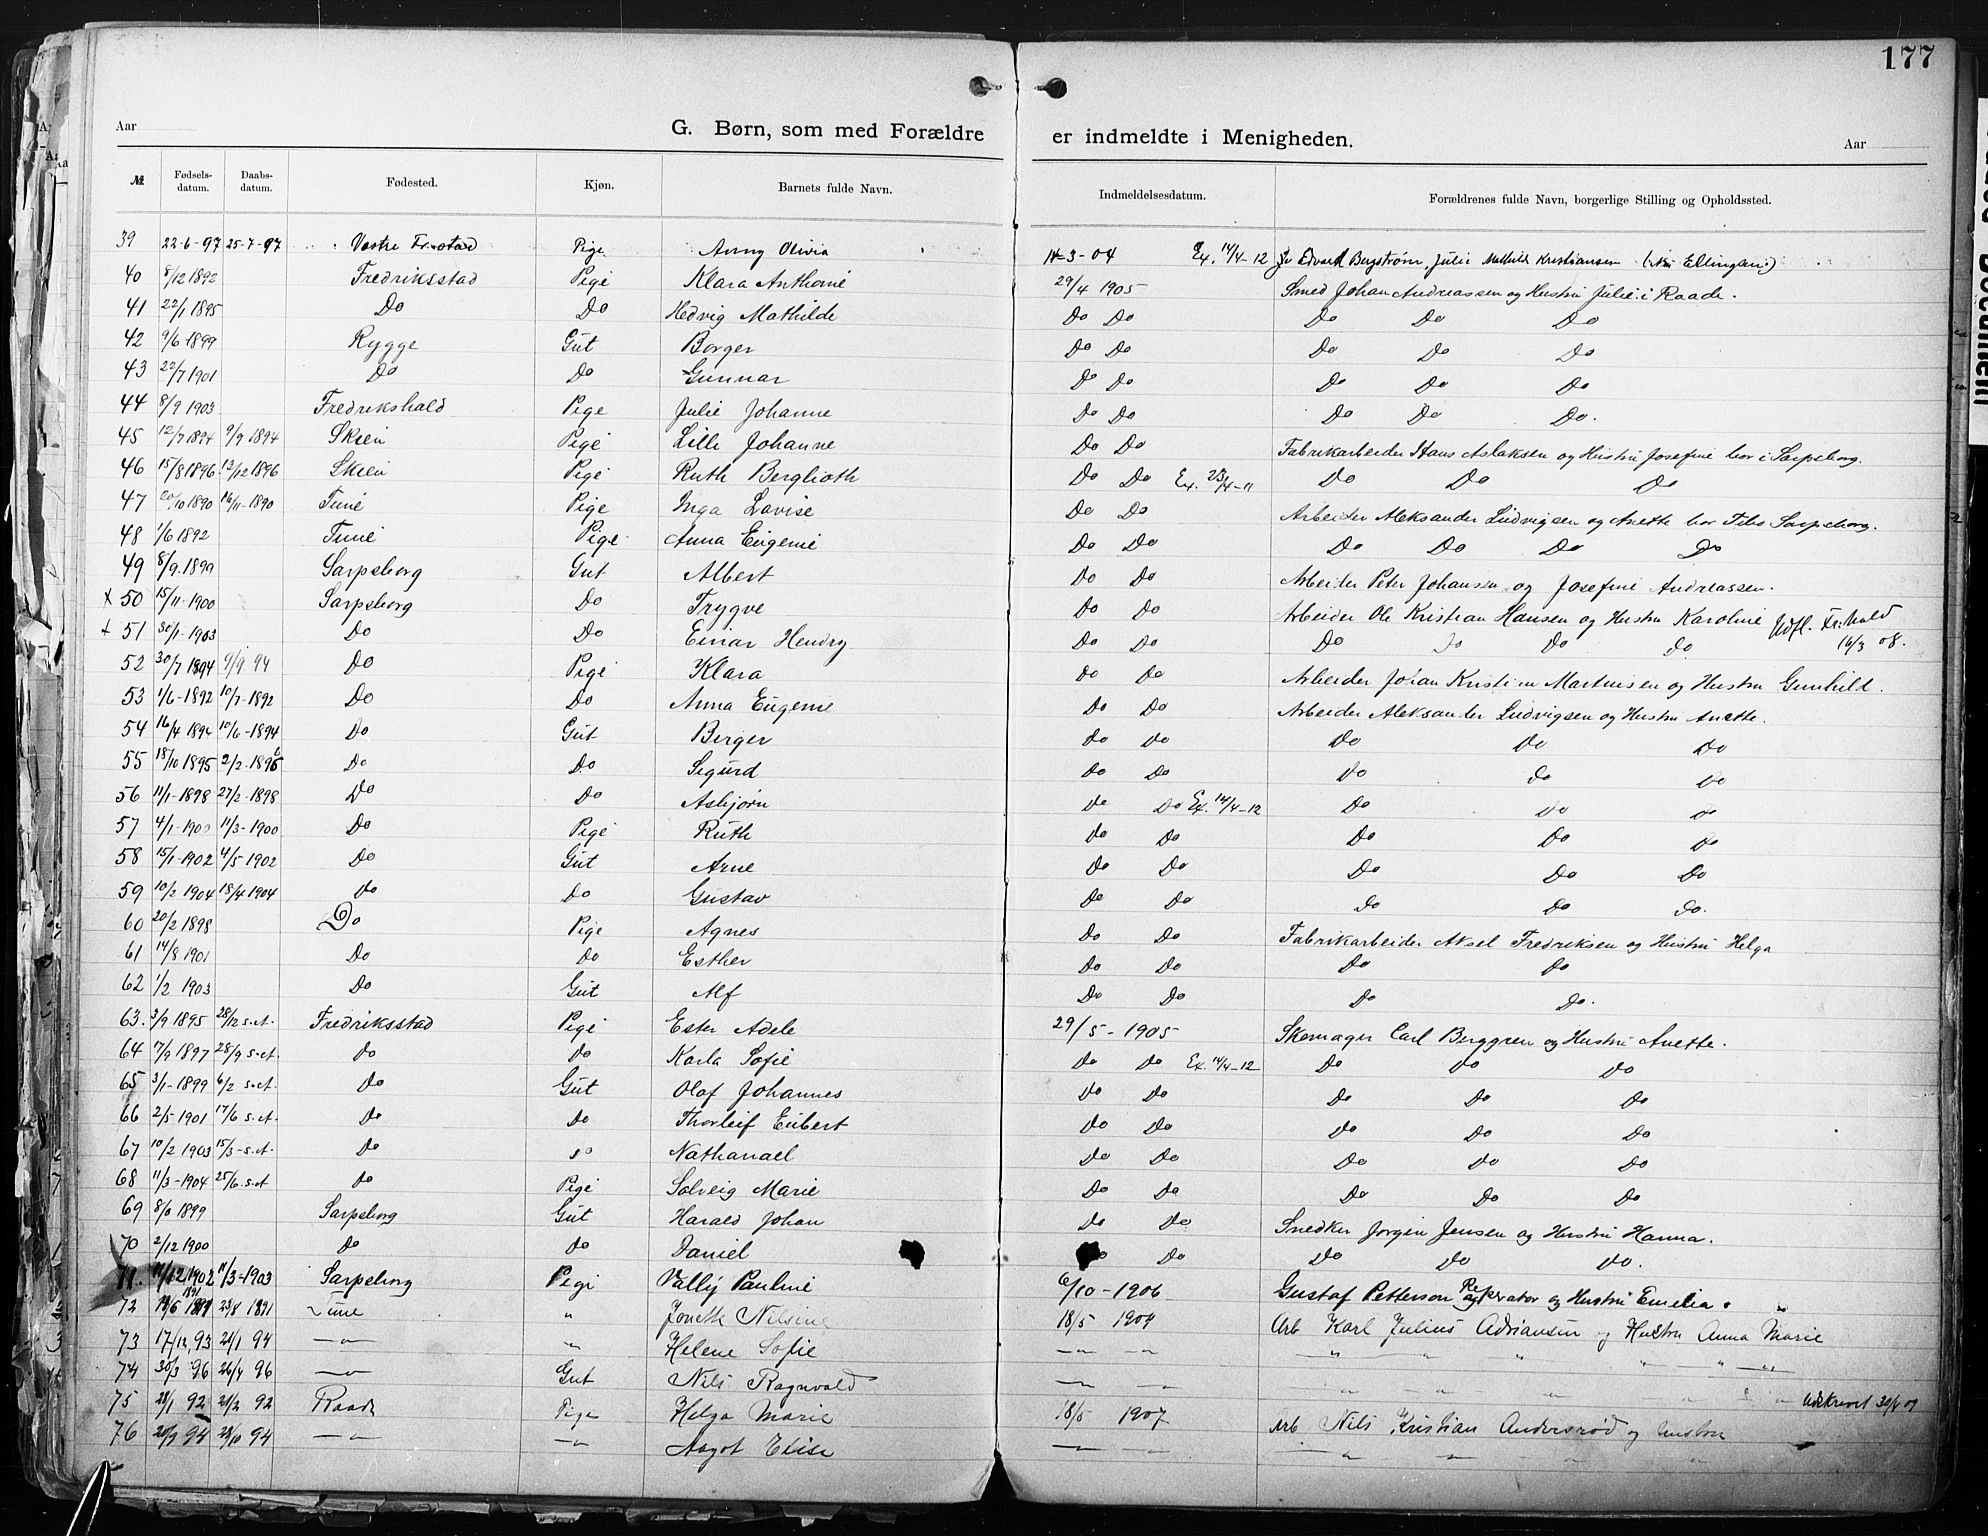 177
Aar G. Børn, som med Forældre er indmeldte i Menigheden. Aar
№ Fødsels-datum. Daabs-datum. Fødested. Kjøn. Barnets fulde Navn. Indmeldelsesdatum. Forældrenes fulde Navn, borgerlige Stilling og Opholdssted.
39 22-6-97 25-7-97 Vestre Fr.stad Pige Anny Olivia 14-3-04 Ex. 14/4-12 Edvard Bergstrøm, Julie Mathild Kristiansen
40 8/12 1892 Fredriksstad Pige Klara Anthonie 29/4 1905 Smed Johan Andreassen og Hustru Julie i Raade.
41 22/1 1895 Do Do Hedvig Mathilde Do Do Do Do Do
42 9/6 1899 Rygge Gut Borger Do Do Do Do Do
43 22/7 1901 Do Do Gunnar Do Do Do Do Do
44 8/9 1903 Fredrikshald Pige Julie Johanne Do Do Do Do Do.
45 12/7 1894 9/9 1894 Skien Pige Lilli Johanne Do Do Fabrikarbeider Hans Aslaksen og Hustru Josefine bor i Sarpsborg.
46 15/8 1896 13/12 1896 Skien Pige Ruth Berglioth Do Do Ex. 23/4-11 Do Do Do
47 20/10 1890 16/11-1890 Tune Pige Inga Lovise Do Do Arbeider Aleksander Ludvigsen og Anette bor Sarpsborg.
48 1/6 1892 Tune Pige Anna Eugenie Do Do Do Do Do Do
49 8/9. 1899 Sarpsborg Gut Albert Do Do Arbeider Peter Johansen og Josefine Andreassen.
x 50 15/11-1900 Sarpsborg Do Trygve Do Do Arbeider Ole Kristian Hansen og Hustru Karoline Udfl. Fr.hald
x 51 30/1-1903 Do Do Einar Hendry Do Do Do Do Do Do 16/3 08.
52 30/7 1894 9/9 94 Do Pige Klara Do Do Arbeider Johan Kristian Martinisen og Hustru Gunhild.
53 1/6-1892 10/7-1892 Do Do Anna Eugenie Do Do Arbeider Aleksander Ludvigsen og Hustru Anette.
54 16/4 1894 10/6-1894 Do Gut Berger Do Do Do Do Do
55 18/10 1895 2/2 1896 Do Do Sigurd Do Do Do Do Do
56 11/1-1898 27/2-1898 Do Do Asbjørn Do Do Ex. 14/4-12 Do Do Do
57 4/1-1900 11/3-1900 Do Pige Ruth Do Do Do Do Do
58 15/1-1902 4/5 1902 Do Gut Arne Do Do Do Do Do
59 10/2 1904 18/4 1904 Do Do Gustav Do Do Do Do Do.
60 20/2 1898 Do Pige Agnes Do Do Fabrikarbeider Aksel Fredriksen og Hustru Helga
61 14/8 1901 Do Do Esther Do Do Do Do
62 1/2 1903 Do Gut Alf Do Do Do Do.
63. 3/9 1895 28/12 s.A. Fredriksstad Pige Ester Adele 29/5-1905 Skomager Carl Berggren og Hustru Anette.
64 17/9 1897 28/9 s.A. Do Do Karla Sofie Do Do Ex. 14/4-12 Do Do Do
65 3/1-1899 6/2 s.A. Do Gut Olaf Johannes Do Do Do Do Do
66 2/5 1901 17/6 s.A. Do Do Thorleif Eubert Do Do Do Do Do
67 10/2 1903 15/3-s.A. Do Do Nathanael Do Do Do Do Do
68 11/3-1904 25/6 s.A Do Pige Solveig Marie Do Do Do Do Do
69 8/6 1899 Sarpsborg Gut Harald Johan Do Do Snedker Jørgen Jensen og Hustru Hanna.
70 2/12 1900 Do Do Daniel Do Do Do Do.
71. 17/12 1902 11/3-1903 Sarpsborg Pige Vally Pauline 6/10-1906 Gustaf Petterson Reperatør og Hustru Emelia.
72 1891 23/8 1891 Tune " Jonette Nilsine 18/5 1907 Arb Karl Julius Adriansen og Hustru Anna Marie
73 17/12 93 21/1 94 — " — " Helene Sofie — " — " — " "
74 30/3 96 26/4 96 — " — Gut Nils Ragnvald — " "
75 28/1 92 21/2 92 Raade Pige Helga Marie 18/5 1907 Arb Nils Kristian Andersrød og Hustru Udskrevet 30/4 09
76 20/9 94 28/10 94 — " — — " — Aagot Elise — " — "